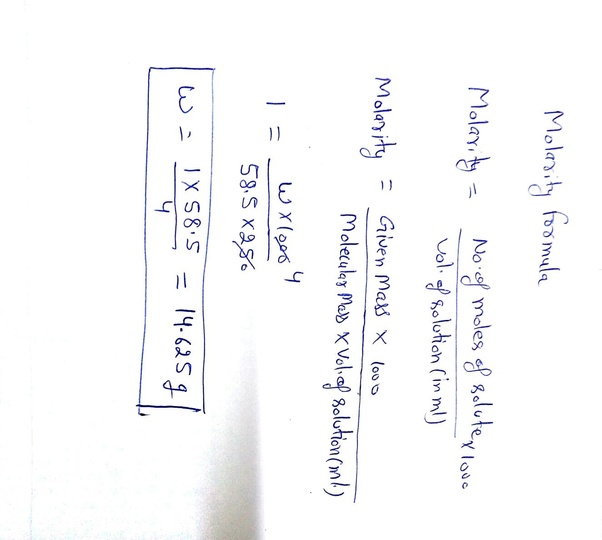 Molarity formula
Molarity = No. of moles of solute / Vol. of solution (in ml) x 1000
Molarity = Given Mass x 1000 / Molecular Mass x Vol. of solution (ml)
1 = w x 1000 4 / 58.5 x 250
w = 1 x 58.5 / 4 = 14.625 g